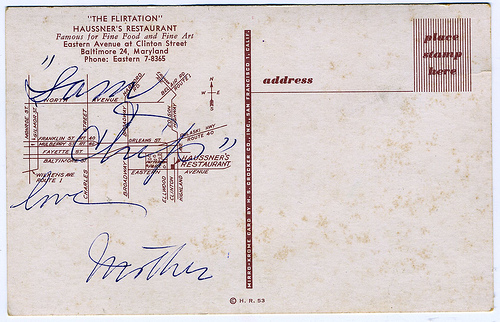 "THE FLIRTATION"
HAUSSNER'S RESTAURANT
Famous for Fine Food and Fine Art
Eastern Avenue at Clinton Street
Baltimore 24, Maryland
Phone: Eastern 7-8365
place
stamp
here
address
"Sam
love
Mother
N
W
E
S
NORTH AVENUE
MONROE ST.
FRANKLIN ST. RT. 40
MULBERRY ST. RT. 40
FAYETTE ST.
BALTIMORE
WILKENS AVE
ROUTE 1
CHARLES
STREET
BROADWAY
ORLEANS ST.
PULASKI HWY
ROUTE 40
HAUSSNER'S
RESTAURANT
EASTERN AVENUE
ELLWOOD
CLINTON
HIGHLAND
BEL AIR RD.
ROUTE 1
MIRRO-KROME CARD BY H.S. CROCKER CO., INC., SAN FRANCISCO 1, CALIF.
© H. R. 53